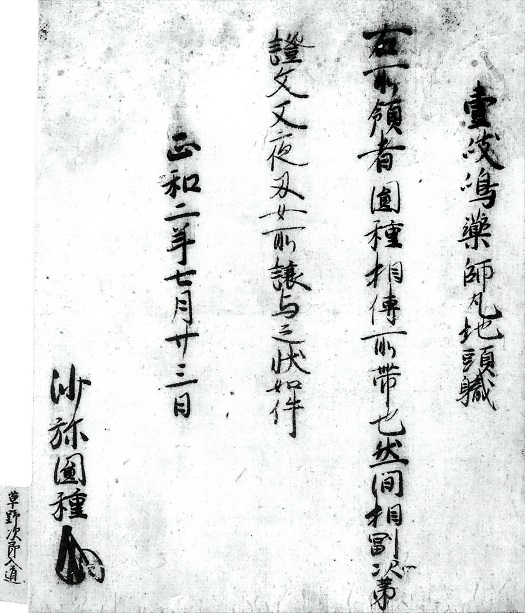 壹岐嶋薬師丸地頭職
右所領者圓種相傳所帯也然間相副次第
證文又夜叉女所譲与之状如件
正和二年七月廿三日
沙弥圓種
草野次郎入道